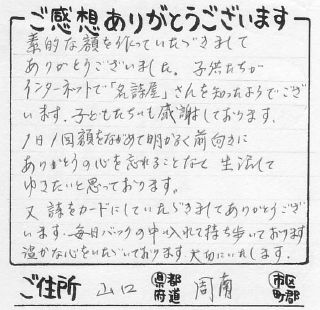 ご感想ありがとうございます
素的な額を作っていただきまして
ありがとうございました。子供たちが
インターネットで「名詩屋」さんを知ったようでござ
います。子どもたちいも感謝しております。
1日1回額をながめて明かるく前向きに
ありがとうの心を忘れることなく 生活して
ゆきたいと思っております。
又 詩をカードにしていただきましてありがとうござ
います。毎日バックの中へ入れて持ち歩いております
温かな心をいただいております。大切にいたします。
ご住所 山口 都道府県 周南 市区町郡